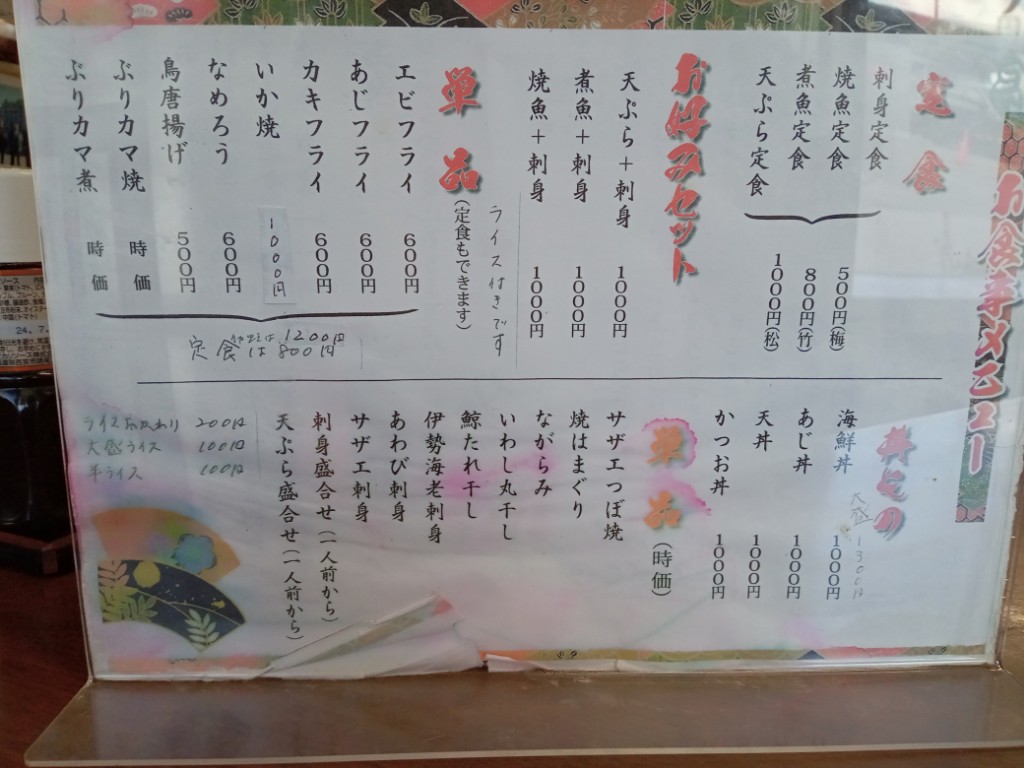 お食事メニュー
定食
刺身定食
焼魚定食
煮魚定食
天ぷら定食
500円(梅)
800円(竹)
1000円(松)
お好みセット
天ぷら+刺身 1000円
煮魚+刺身 1000円
焼魚+刺身 1000円
ライス付きです
単品(定食もできます)
エビフライ 600円
あじフライ 600円
カキフライ 600円
いか焼 1000円
なめろう 600円
鳥唐揚げ 500円
ぶりカマ焼 時価
ぶりカマ煮 時価
定食は 1200円
800円
丼もの
海鮮丼 1000円
大盛 1300円
あじ丼 1000円
天丼 1000円
かつお丼 1000円
単品(時価)
サザエつぼ焼
焼はまぐり
ながらみ
いわし丸干し
鯨たれ干し
伊勢海老刺身
あわび刺身
サザエ刺身
刺身盛合せ(二人前から)
天ぷら盛合せ(二人前から)
ライスおかわり 200円
大盛ライス 100円
半ライス 100円
24.7.